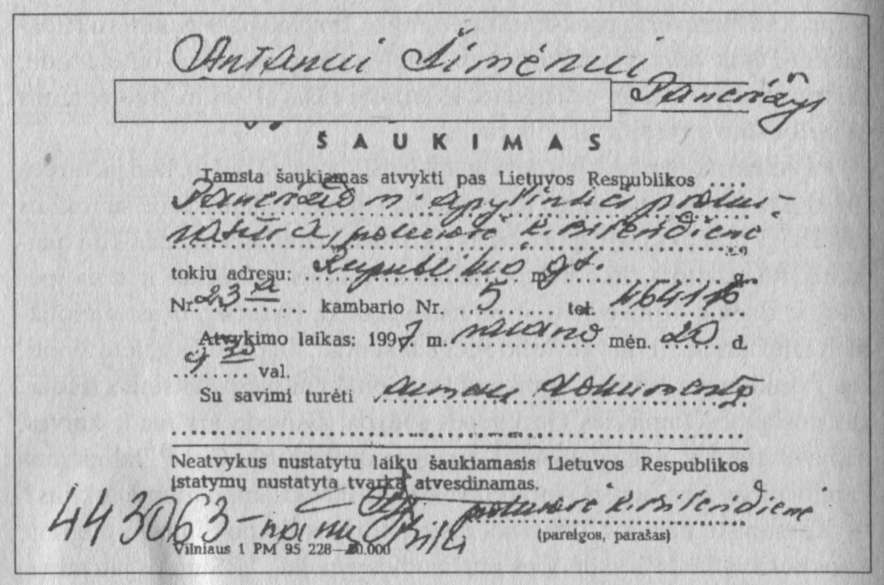 Antanui Šimėnui
Panevėžys
ŠAUKIMAS
Tamsta šaukiamas atvykti pas Lietuvos Respublikos
Panevėžio m. apylinkės proku-
ratūrą,
tokiu adresu: Respublikos m. gt. g.
Nr. 23 kambario Nr. 5 tel.
Atvykimo laikas: 1997 m. mėn. 20 d.
9 30 val.
Su savimi turėti asmens dokumentą
Neatvykus nustatytu laiku šaukiamasis Lietuvos Respublikos
įstatymų nustatyta tvarka atvesdinamas.
443063 - namų
(pareigos, parašas)
Vilniaus 1 PM 95 228—50.000